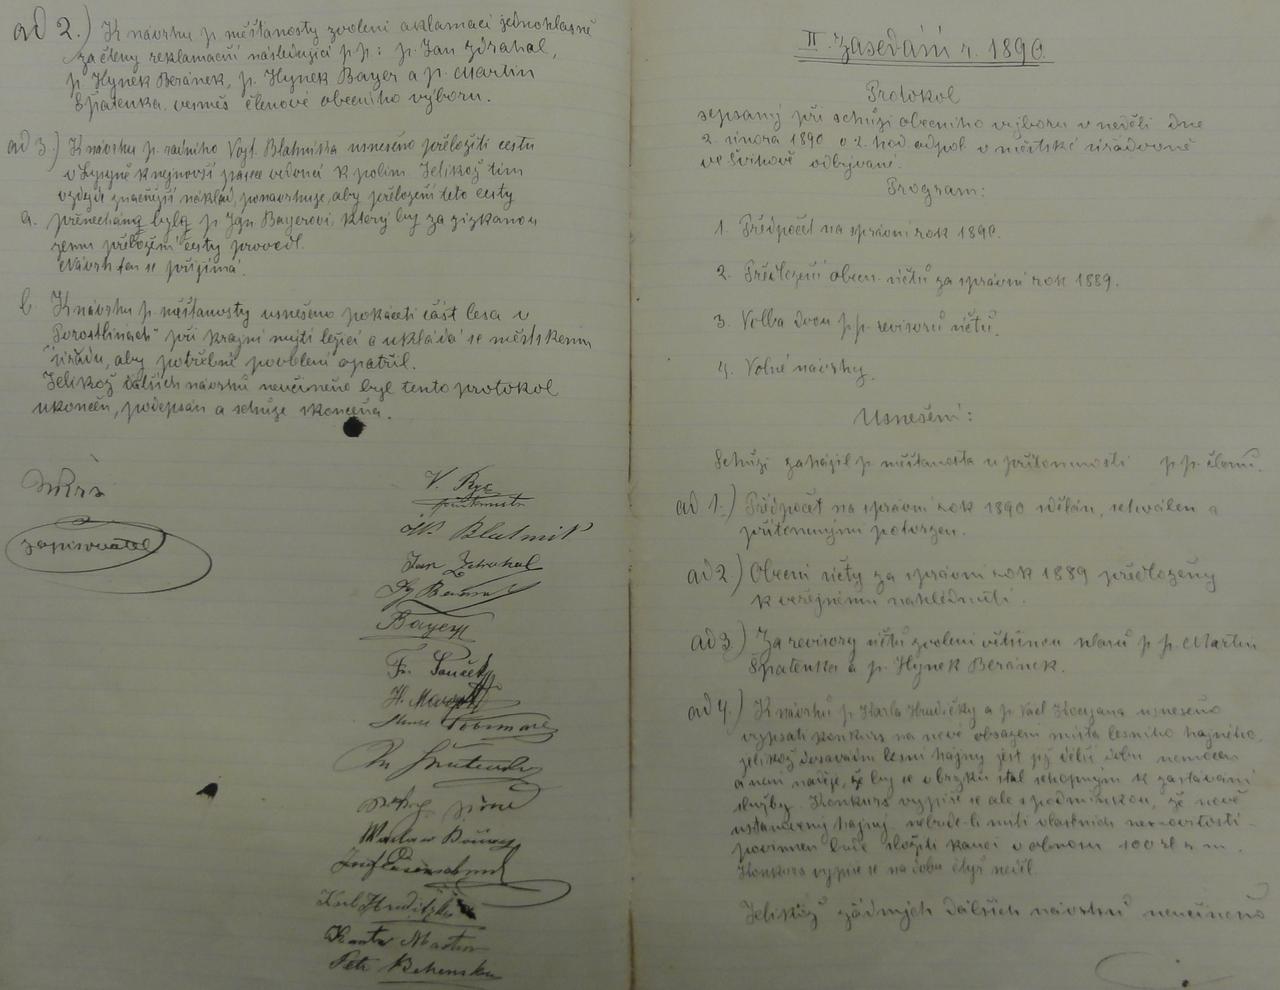 ad 2.) K návrhu p. měšťanosty zvoleni aklamací jednohlasně
za členy reklamační následující p.p.: p. Jan Zdráhal,
p. Hynek Beránek, p. Hynek Bayer a p. Martin
Špatenka, vesměs členové obecního výboru.
ad 3.) K návrhu p. radního Vojt. Blahnika usneseno přeložiti cestu
v Lysyně k nejnovější vedoucí k polím. Jelikož tím
vzejde značnější náklad, ponavrhuje, aby přeložení této cesty
a. přenecháno bylo p. Ign. Bayerovi, který by za získanou
zemi přeložení cesty provedl.
Návrh ten se přijímá.
b. K návrhu p. měšťanosty usneseno pokáceti část lesa v
"Porostlinách" při krajní mýti ležící a ukládá se městskému
úřadu, aby potřebné povolení opatřil.
Jelikož dalších návrhů neučiněno byl tento protokol
ukončen, podepsán a schůze skončena.
zapisovatel
V. Ryc
W. Blahnik
Jan Zdrahal
Hy Beránek
Bayer
Fr. Souček
Karl Hruditzka
Martin
Petr Behensky
II. Zasedání r. 1890.
Protokol
sepsaný při schůzi obecního výboru v neděli dne
2. února 1890 o 2. hod. odpol. v městské úřadovně
ve Švihově odbývané.
Program:
1. Předpočet na správní rok 1890.
2. Předložení obecn. účtů za správní rok 1889.
3. Volba dvou p.p. revisorů účtů.
4. Volné návrhy.
Usnešení:
Schůzi zahájil p. měšťanosta u přítomnosti p.p. členů.
ad 1.) Předpočet na správní rok 1890 sdělán, schválen a
přítomnými potvrzen.
ad 2.) Obecní účty za správní rok 1889 předloženy
k veřejnému nahlédnutí.
ad 3.) Za revisory účtů zvoleni většinou hlasů p.p. Martin
Špatenka a p. Hynek Beránek.
ad 4.) K návrhů p. Karla Hrudičky a p. Václ. Kocyana usneseno
vypsati konkurs na nové obsazení místa lesního hajného,
jelikož dosavádní lesní hajný jest již delší dobu nemocen
a není naděje, že by se v brzku stal schopným k zastávání
služby. Konkurs vypíše se ale s podmínkou, že nově
ustanovený hajný, nebude-li míti vlastních nemovitostí
povinen bude složiti kauci v obnosu 100 zl r. m.
Konkurs vypíše se na dobu čtyř neděl.
Jelikož žádných dalších návrhů neučiněno